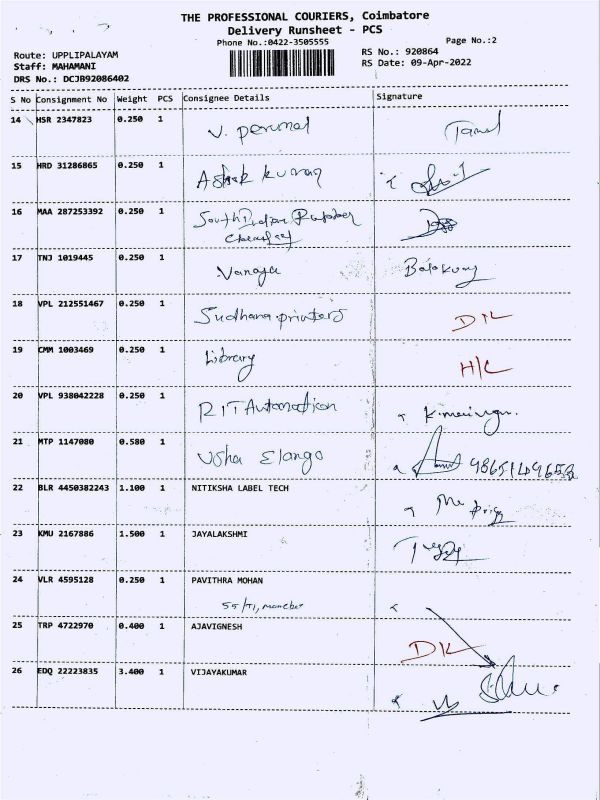 THE PROFESSIONAL COURIERS, Coimbatore
Delivery Runsheet - PCS
Phone No.:0422-3505555
Page No.:2
Route: UPPLIPALAYAM
RS No.: 920864
Staff: MAHAMANI
RS Date: 09-Apr-2022
DRS No.: DCJB92086402
S No Consignment No Weight PCS Consignee Details Signature
14 HSR 2347823 0.250 1 V. perumal Tamil
15 HRD 31286865 0.250 1 Ashok kumar
16 MAA 287253392 0.250 1 South Indian Rubber
17 TNJ 1019445 0.250 1 Vanaja Balakumar
18 VPL 212551467 0.250 1 Sudhana printers DIL
19 CMM 1003469 0.250 1 Library H/C
20 VPL 938042228 0.250 1 RIT Automation
21 MTP 1147080 0.580 1 Usha Elango
22 BLR 4450382243 1.100 1 NITIKSHA LABEL TECH
23 KMU 2167886 1.500 1 JAYALAKSHMI
24 VLR 4595128 0.250 1 PAVITHRA MOHAN
25 TRP 4722970 0.400 1 AJAVIGNESH DIL
26 EDQ 22223835 3.400 1 VIJAYAKUMAR